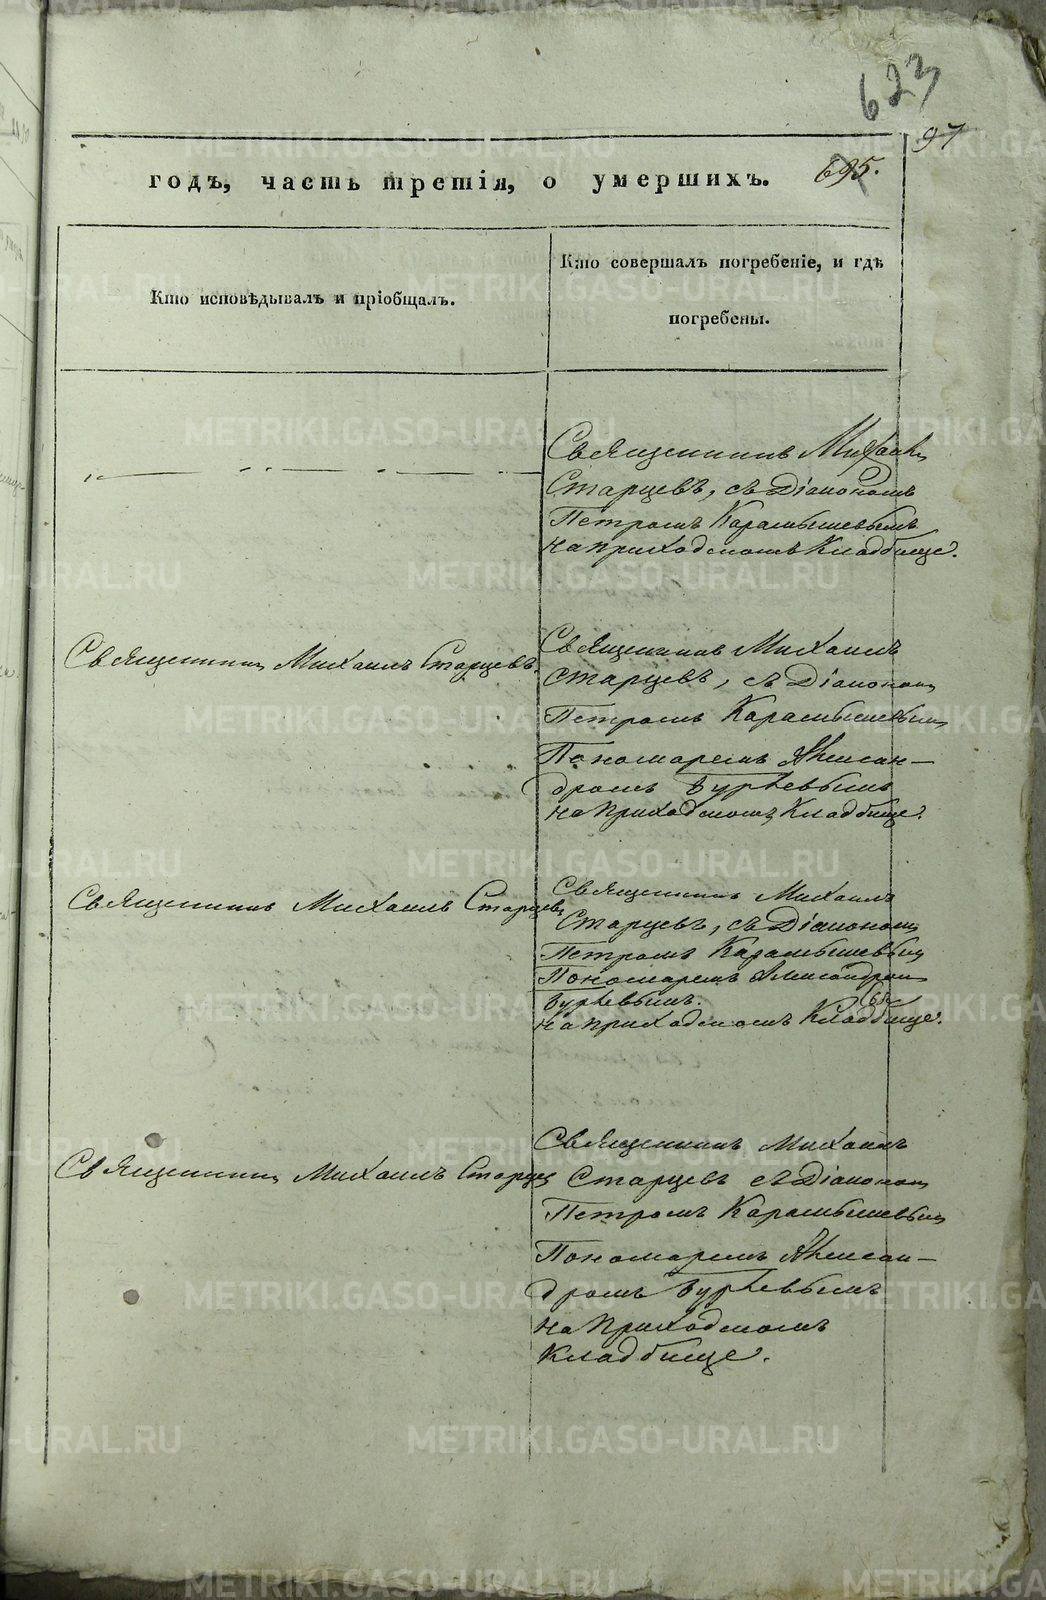 623
97
695.
годъ, часть третія, о умершихъ.
Кто исповѣдывалъ и пріобщалъ.
Кто совершалъ погребеніе, и гдѣ
погребены.
Священникъ Михаилъ
Старцевъ, съ Діакономъ
Петромъ Карамышевымъ
на приходскомъ Кладбище.
Священникъ Михаилъ Старцевъ.
Священникъ Михаилъ
Старцевъ, съ Діакономъ
Петромъ Карамышевымъ
Пономаремъ Алексан-
дромъ
на приходскомъ Кладбище.
Священникъ Михаилъ Старцевъ
Священникъ Михаилъ
Старцевъ, съ Діакономъ
Петромъ Карамышевымъ
Пономаремъ Александромъ
на приходскомъ Кладбище.
Священникъ Михаилъ Старцевъ
Священникъ Михаилъ
Старцевъ съ Діакономъ
Петромъ Карамышевымъ
Пономаремъ Алексан-
дромъ
на приходскомъ
Кладбище.
METRIKI.GASO-URAL.RU